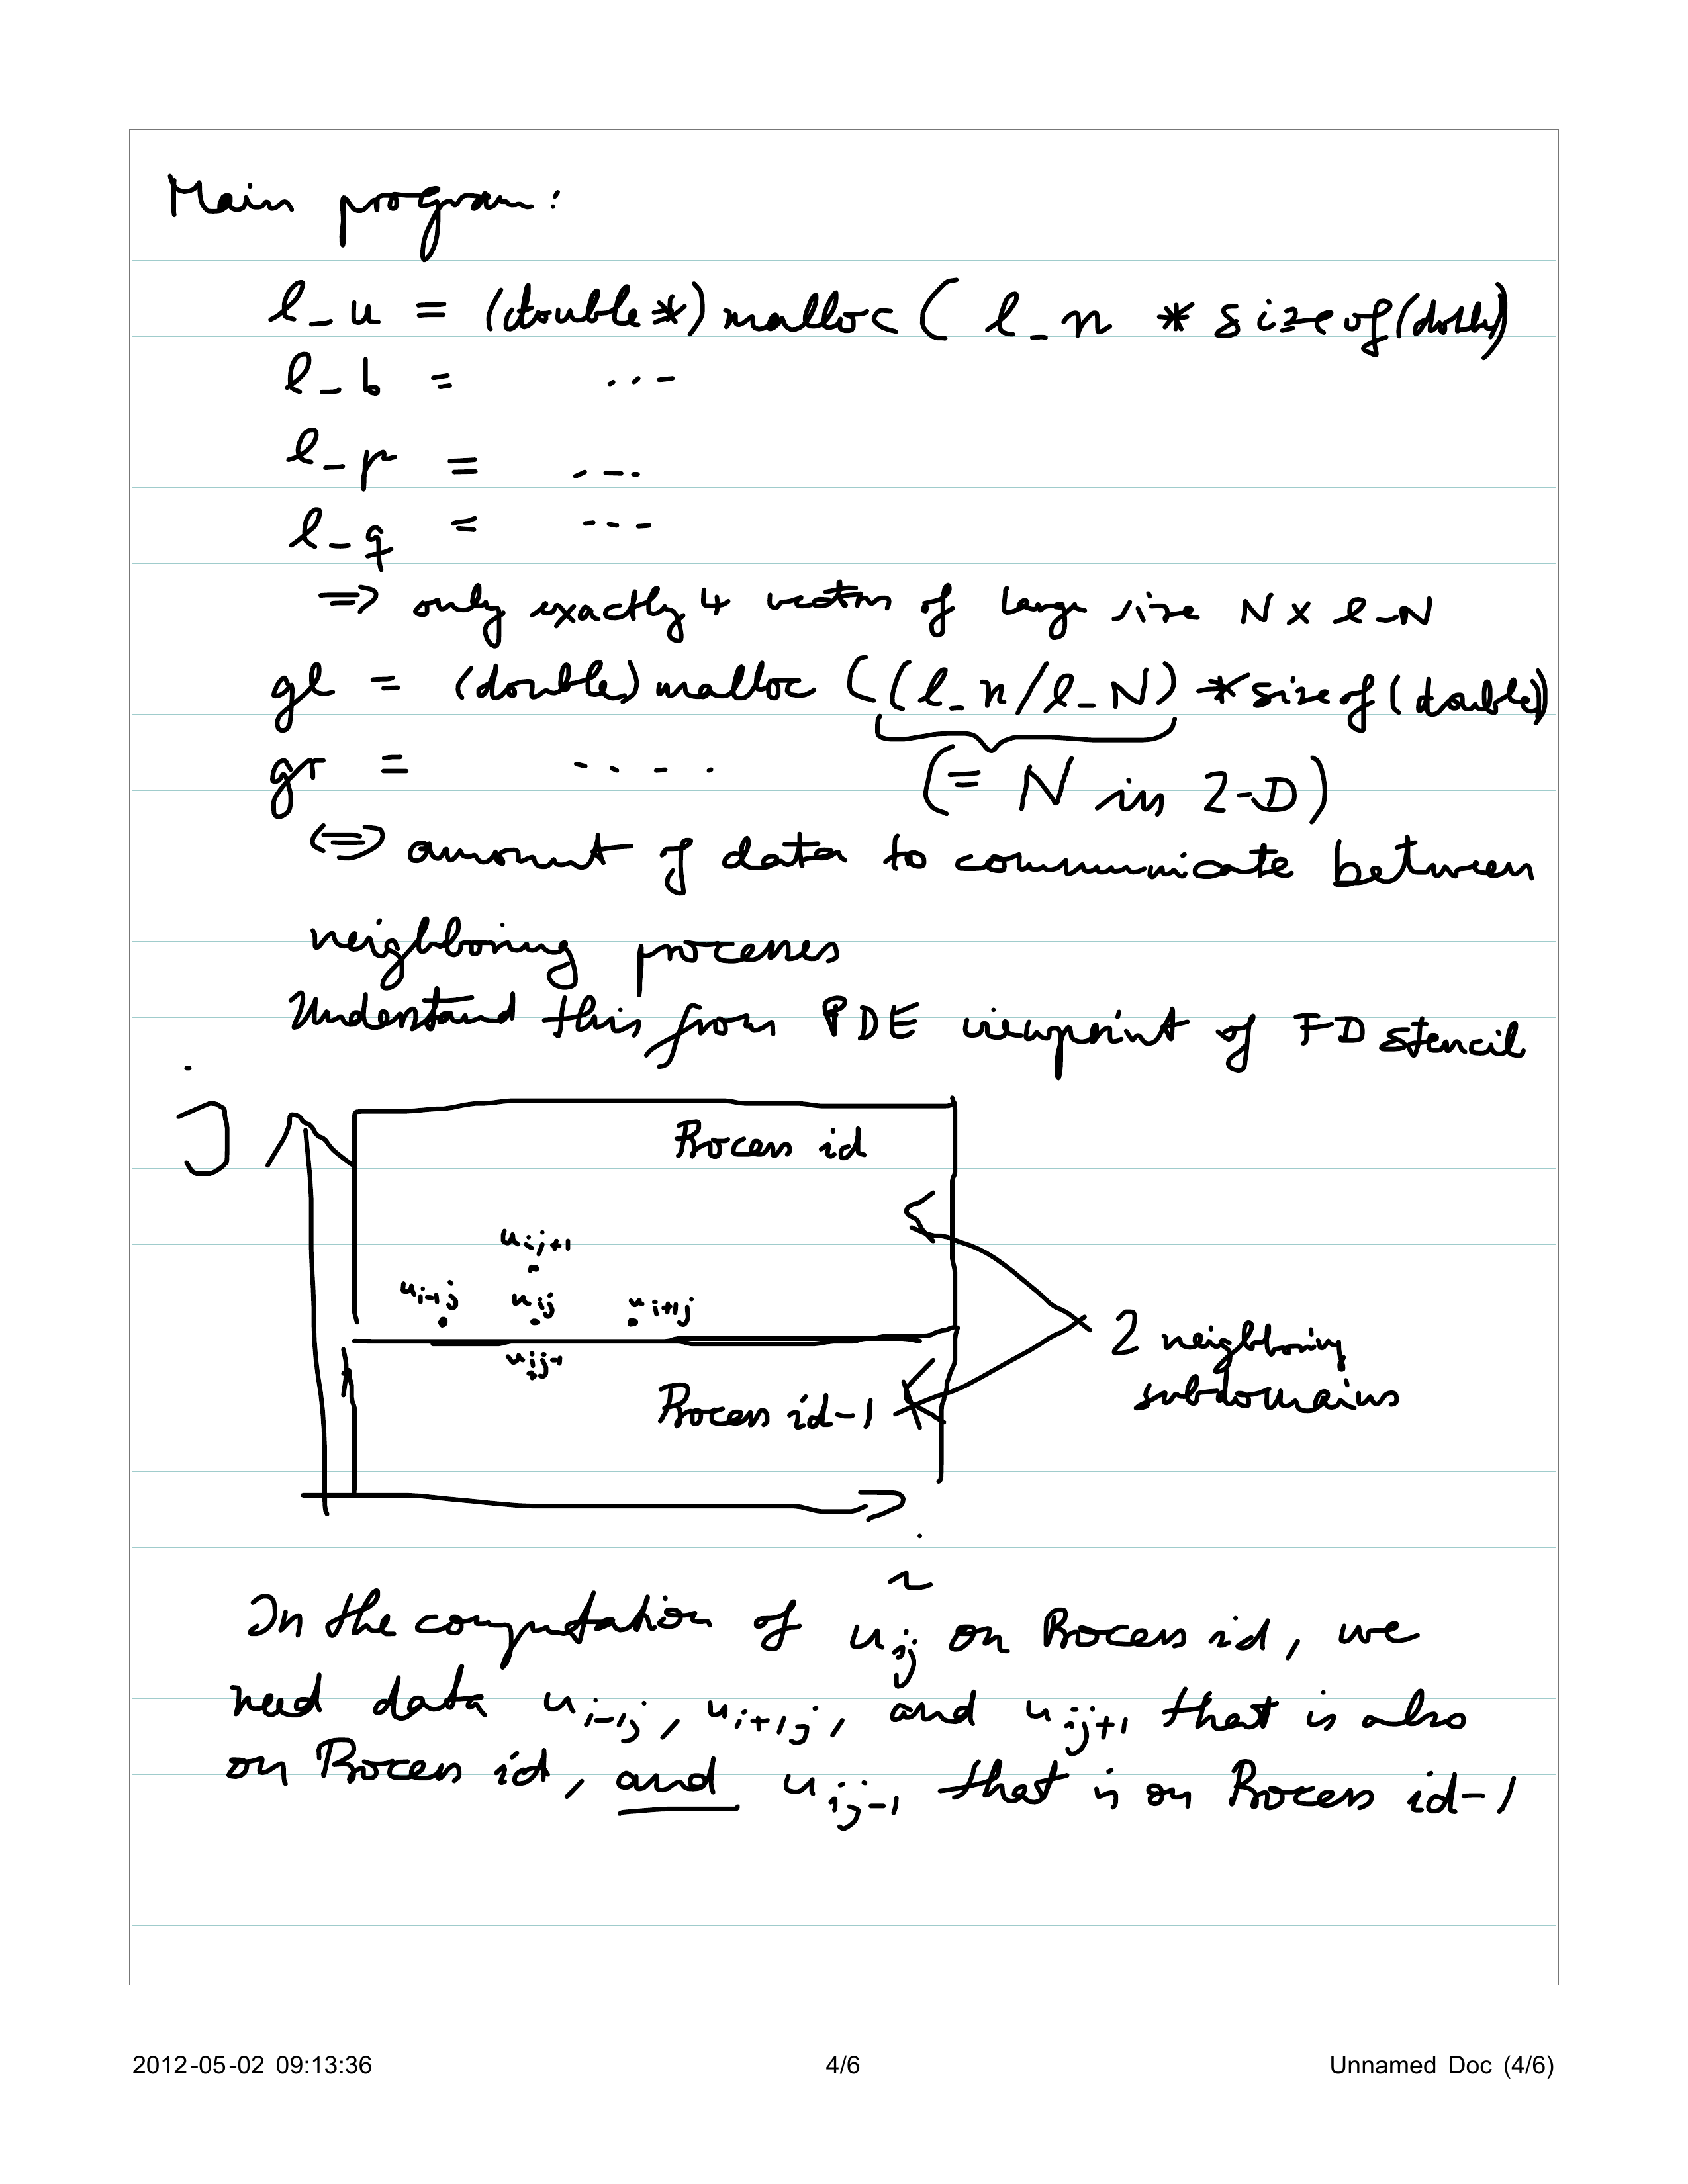 Main program:
l_u = (double*) malloc ( l_n * sizeof(double)
l_b = ...
l_r = ...
l_q = ---
=> only exactly 4 vectors of large size N x l_N
gl = (double) malloc ((l_n/l_N) * sizeof(double))
gr = ....
(= N in 2-D)
(=> amount of data to communicate between
neighboring processes
Understand this from PDE viewpoint of FD stencil
j
Process id
u ij+1
u i-1j u ij u i+1j
u ij-1
2 neighboring
subdomains
Process id-1
i
In the computation of u ij on Process id, we
need data u i-1j, u i+1j, and u ij+1 that is also
on Process id, and u ij-1 that is on Process id-1
2012-05-02 09:13:36 4/6 Unnamed Doc (4/6)